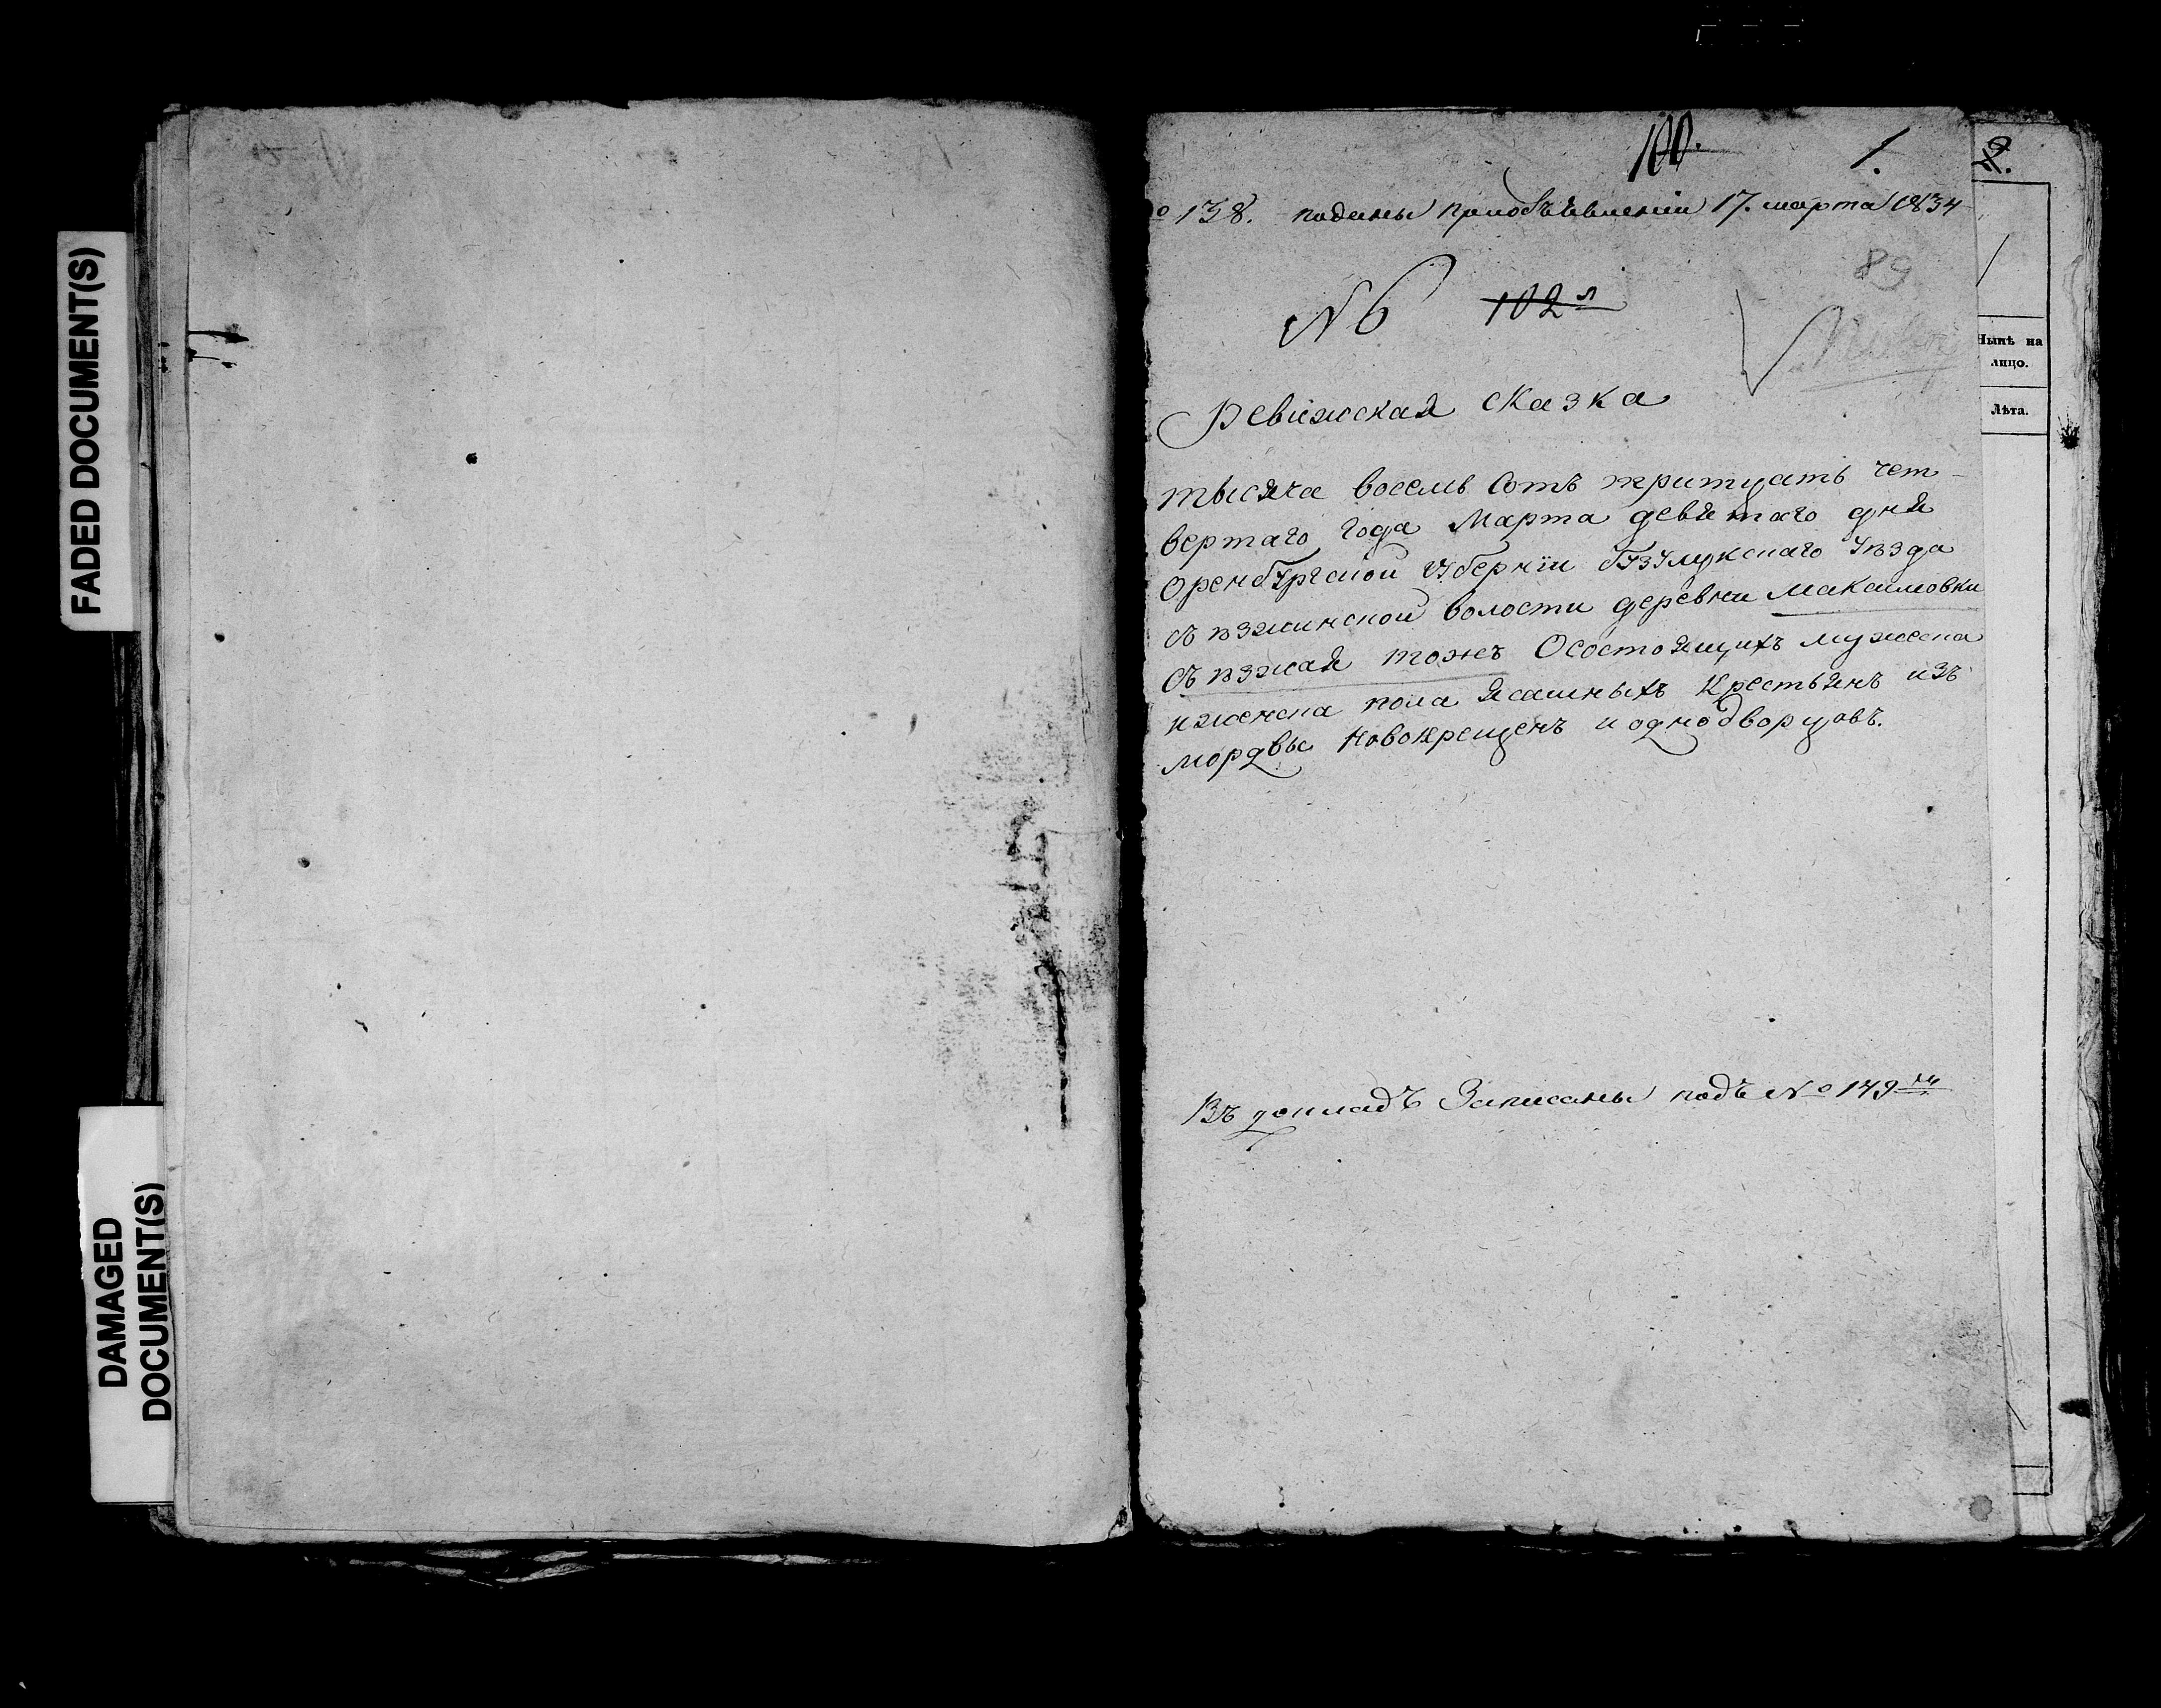 FADED DOCUMENT(S)
DAMAGED
DOCUMENT(S)
100.
1.
2.
№ 138. поданы приобъявлении 17. марта 1834
89
№ 6 102 л
Ныпѣ на
лицо.
Лѣта.
Ревижская сказка
тысяча восемь сотъ притцать чет-
вертаго года Марта девятаго дня
Оренбургской губернiи бузулукскаго уѣзда
съѣзжинской волости деревни Максимовки
съѣзжая тожъ Осостоящихъ мужеска
иженска пола ясашныхъ крестьянъ изъ
мордвы новокрещенъ и однодворцовъ.
Въ докладъ Записаны подъ № 149 м